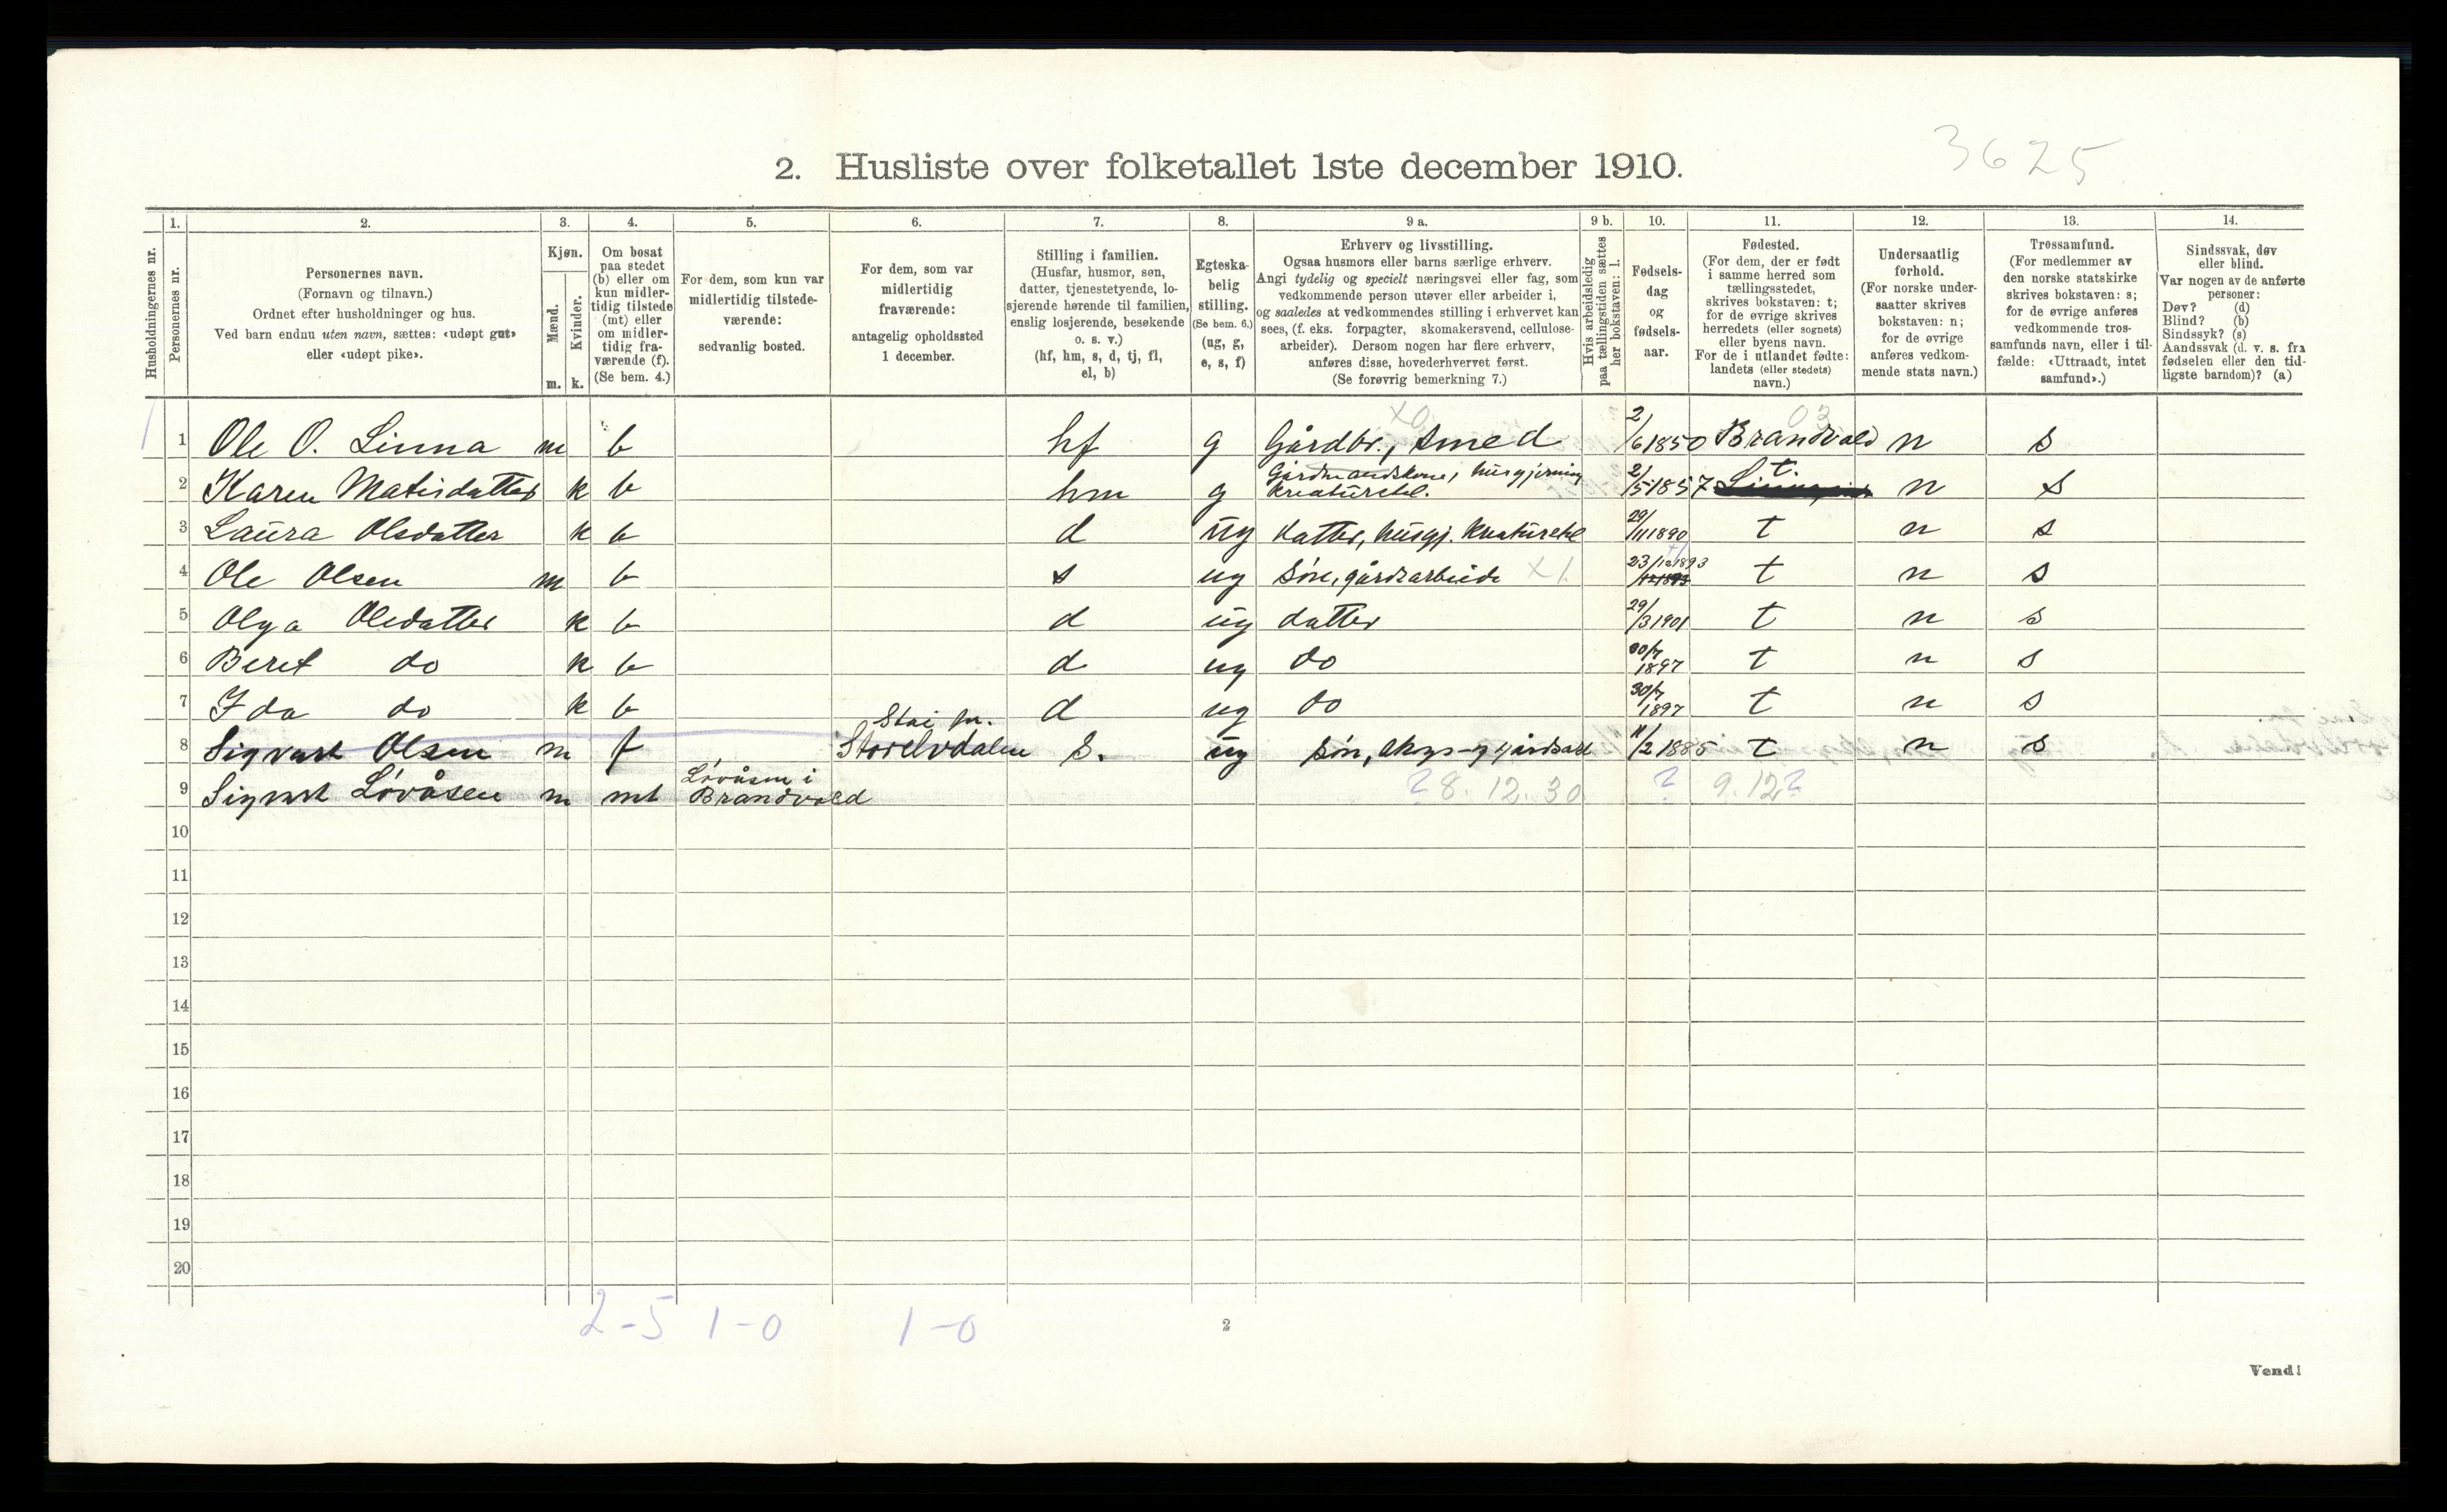 3625
2. Husliste over folketallet 1ste december 1910.
Husholdningernes nr.
1.
Personernes nr.
2.
Personernes navn.
(Fornavn og tilnavn.)
Ordnet efter husholdninger og hus.
Ved barn endnu uten navn, sættes: «udøpt gut»
eller «udøpt pike».
3.
Kjøn.
Mænd.
Kvinder.
m. k.
4.
Om bosat
paa stedet
(b) eller om
kun midler-
tidig tilstede
(mt) eller
om midler-
tidig fra-
værende (f).
(Se bem. 4.)
5.
For dem, som kun var
midlertidig tilstede-
værende:
sedvanlig bosted.
6.
For dem, som var
midlertidig
fraværende:
antagelig opholdssted
1 december.
7.
Stilling i familien.
(Husfar, husmor, søn,
datter, tjenestetyende, lo-
sjerende hørende til familien,
enslig losjerende, besøkende
o. s. v.)
(hf, hm, s, d, tj, fl,
el, b)
8.
Egteska-
belig
stilling.
(Se bem. 6.)
(ug, g,
e, s, f)
9 a.
Erhverv og livsstilling.
Ogsaa husmors eller barns særlige erhverv.
Angi tydelig og specielt næringsvei eller fag, som
vedkommende person utøver eller arbeider i,
og saaledes at vedkommendes stilling i erhvervet kan
sees, (f. eks. forpagter, skomakersvend, cellulose-
arbeider). Dersom nogen har flere erhverv,
anføres disse, hovederhvervet først.
(Se forøvrig bemerkning 7.)
9 b.
Hvis arbeidsledig
paa tællingstiden sættes
her bokstaven: l.
10.
Fødsels-
dag
og
fødsels-
aar.
11.
Fødested.
(For dem, der er født
i samme herred som
tællingsstedet,
skrives bokstaven: t;
for de øvrige skrives
herredets (eller sognets)
eller byens navn.
For de i utlandet fødte:
landets (eller stedets)
navn.)
12.
Undersaatlig
forhold.
(For norske under-
saatter skrives
bokstaven: n;
for de øvrige
anføres vedkom-
mende stats navn.)
13.
Trossamfund.
(For medlemmer av
den norske statskirke
skrives bokstaven: s;
for de øvrige anføres
vedkommende tros-
samfunds navn, eller i til-
fælde: «Uttraadt, intet
samfund».)
14.
Sindssvak, døv
eller blind.
Var nogen av de anførte
personer:
Døv? (d)
Blind? (b)
Sindssyk? (s)
Aandssvak (d. v. s. fra
fødselen eller den tid-
ligste barndom)? (a)
X0 03
1 1 Ole O. Linna m b hf g Gårdbr., smed 2/6 1850 Brandvold n s
2 Karen Matisdatter k b hm g Gårdmandskone, husgjerning kreaturstel. 2/5 1857 t. n s
3 Laura Olsdatter k b d ug datter, husgj. kreaturstel 29/11 1890 t n s
4 Ole Olsen m b s ug Søn, gårdsarbeide X1 23/12 1893 t n s
5 Olga Olsdatter k b d ug datter 29/3 1901 t n s
6 Beret do k b d ug do 30/7 1897 t n s
7 Ida do k b d ug do 30/7 1897 t n s
8 Sigvart Olsen m f Stai pr. Storelvdalen s. ug søn, skogs- og gårdsarb 11/2 1885 t n s
9 Sigvart Løvåsen m mt Løvåsen i Brandvold ? 8.12.30 ? 9.12?
10
11
12
13
14
15
16
17
18
19
20
2-5 1-0 1-0
2
Vend!